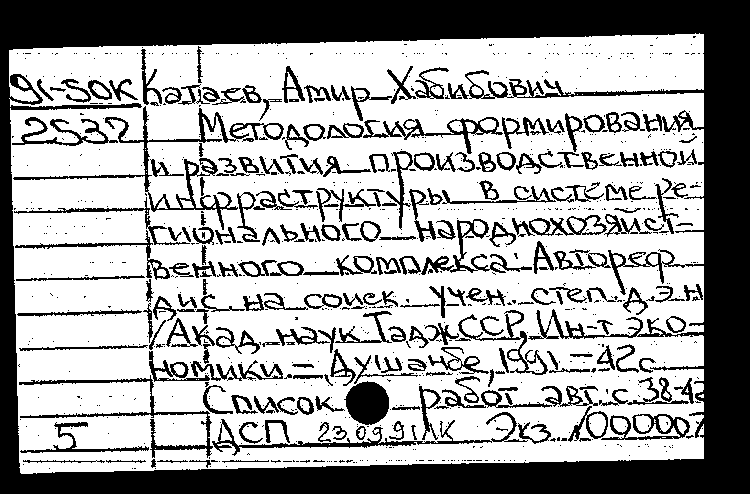 91-50К Катаев, Амир Хабибович
2537 Методология формирования
и развития производственной
инфраструктуры в системе ре-
гионального народнохозяйст-
венного комплекса: Автореф
дис. на соиск. учен. степ. д.э.н
/Акад. наук ТаджССР, Ин-т эко-
номики. – Душанбе, 1991 – 42 с
Список работ авт.: с. 38-42
5 ДСП. 23.09.91 Экз. 000007